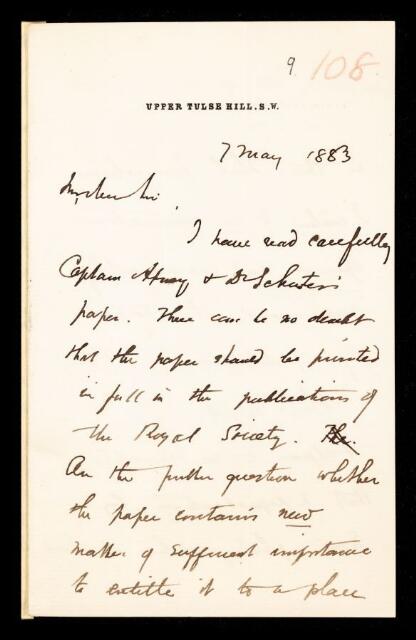 9. 108.
UPPER TULSE HILL. S. W.
7 May 1883
My dear Sir,
I have read carefully
Captain Abney & Dr Schuster's
paper. There can be no doubt
that the paper should be printed
in full in the publications of
the Royal Society. The
On the further question whether
the paper contains new
matter of sufficient importance
to entitle it to a place